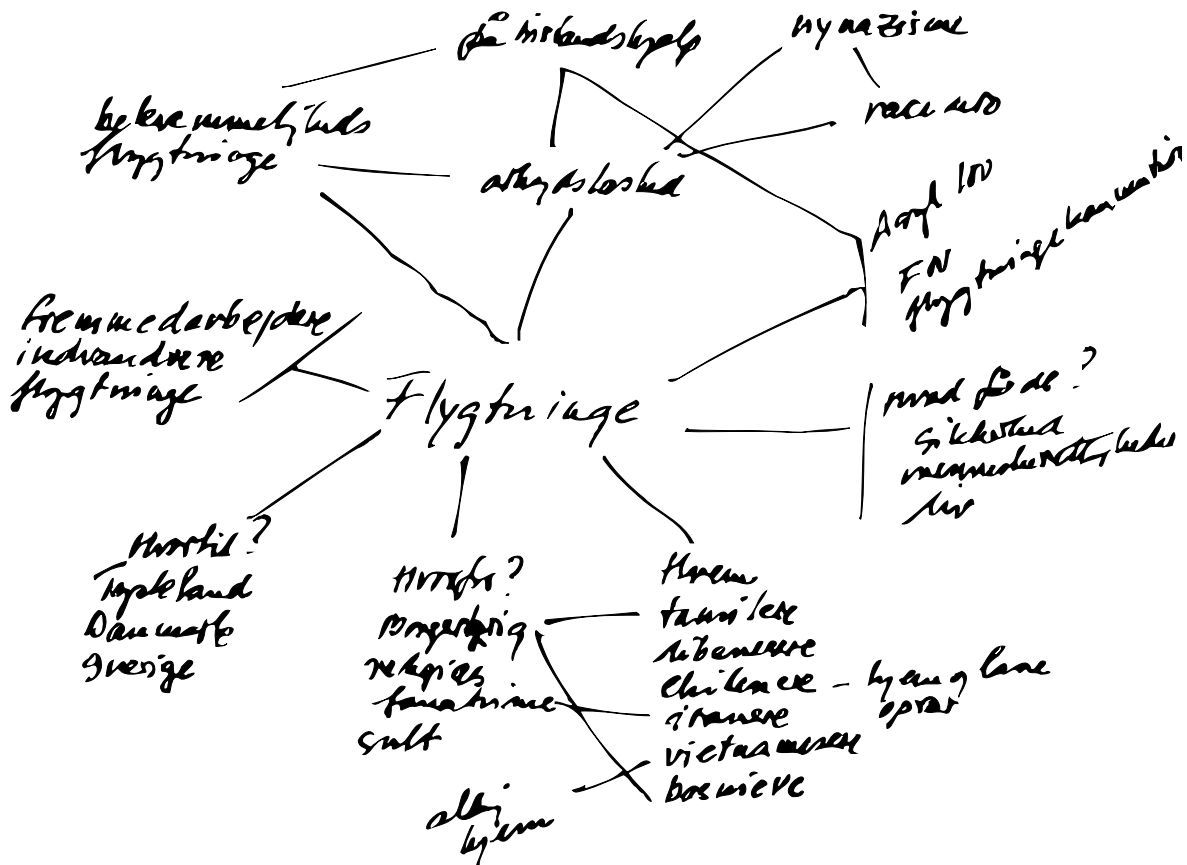 nynazisme
racisme
bekvemmeligheds
flygtninge
arbejdsløshed
Asyl lov
FN
flygtningekonvention
fremmedarbejdere
indvandrere
flygtninge
Flygtninge
Hvad får de?
sikkerhed
menneskerettigheder
liv
Hvortil?
Tyskland
Danmark
Sverige
Hvorfor?
Borgerkrig
religiøs
fanatisme
sult
Hvem
tamilere
libanesere
chilenere - hjem g lane
oprør
iranere
vietnamesere
bosniere
aldrig
hjem